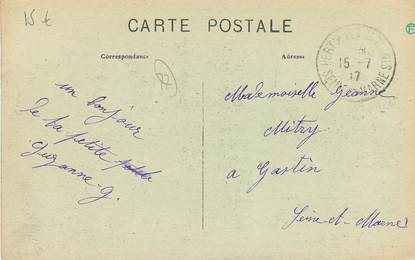 15 €
CARTE POSTALE
Correspondance
Adresse
15-7
17
un bonjour
de la petite
Suzanne G.
Mademoiselle Jeanne
Mitry
a Gastin
Seine-et-Marne